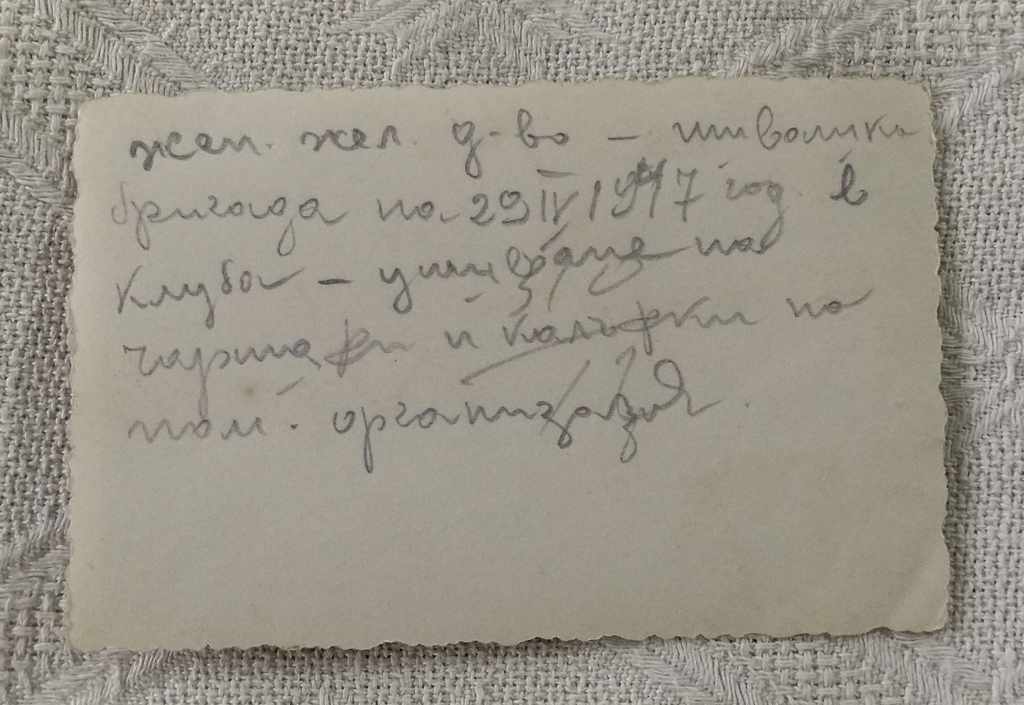 жен. жел. д-во – шивашка
бригада на 29 IV 1947 год. в
клуба – ушиване на
чаршафи и калъфки на
пом. организация.